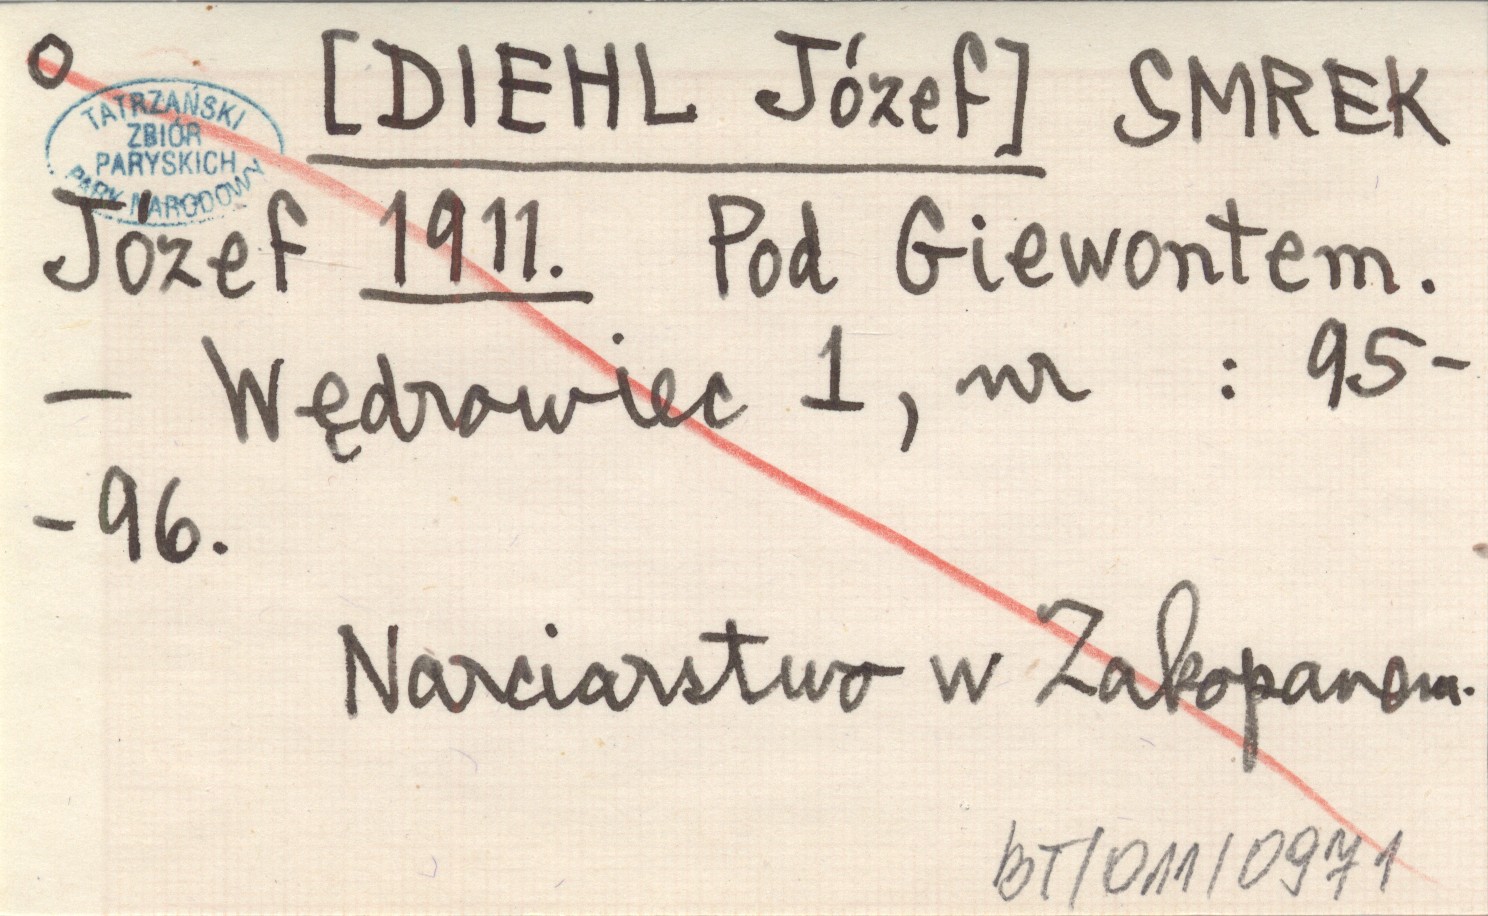 O [DIEHL Józef] SMREK
TATRZAŃSKI
ZBIÓR
PARYSKICH
PARK NARODOWY
Józef 1911. Pod Giewontem.
— Wędrowiec 1, nr : 95-
-96.
Narciarstwo w Zakopanem.
BT/011/0971